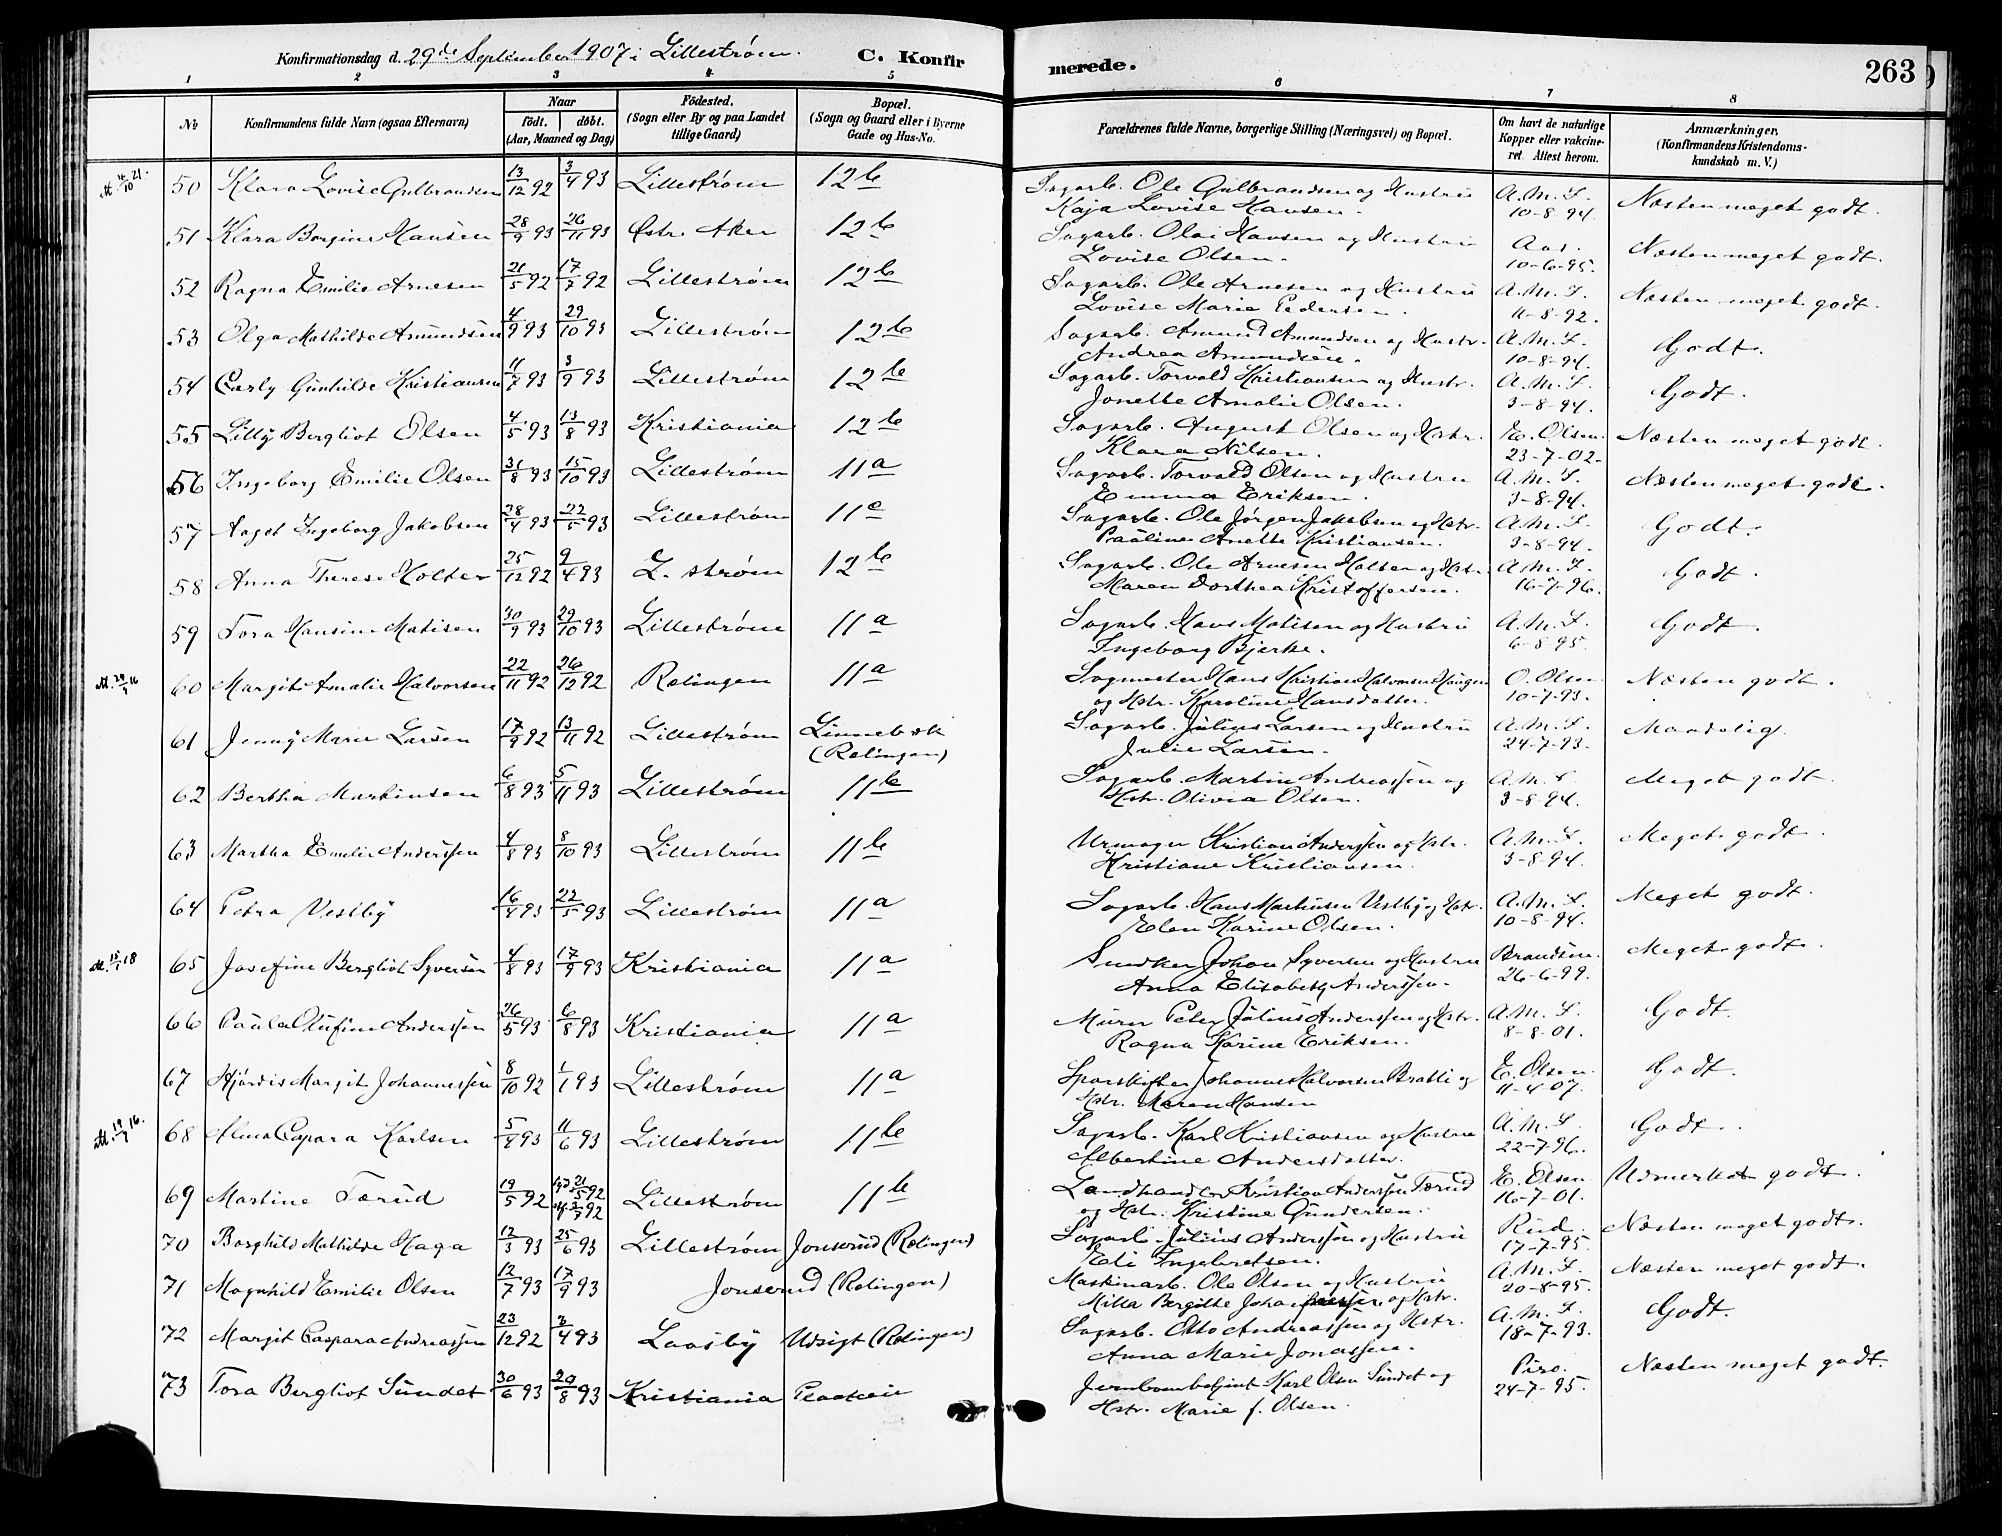 Konfirmationsdag d. 29de September 1907 i Lillestrøm. C. Konfir merede. 263
1 2 3 4 5 6 7 8
No Konfirmandens fulde Navn (ogsaa Efternavn) Naar født. døbt. (Aar, Maaned og Dag) Fødested. (Sogn eller By og paa Landet tillige Gaard) Bopæl. (Sogn og Gaard eller i Byerne Gade og Hus-No. Forældrenes fulde Navne, borgerlige Stilling (Næringsvei) og Bopæl. Om havt de naturlige Kopper eller vakcineret. Attest herom. Anmærkninger. (Konfirmandens Kristendomskundskab m. V.)
50 Klara Lovise Gulbrandsen 13/12 92 3/4 93 Lillestrøm 12b Sagarb. Ole Gulbrandsen og Hustru A. M. L. Næsten meget godt.
Kaja Lovise Hansen. 10-8-94.
51 Klara Borgine Hansen 28/9 93 26/11 93 Østr. Aker 12b Sagarb. Olai Hansen og Hustru Aas. Næsten meget godt.
Lovise Olsen. 10-6-95.
52 Ragna Emilie Arnesen 21/5 92 17/7 92 Lillestrøm 12b Sagarb. Ole Arnesen og Hustru A. M. L. Næsten meget godt.
Lovise Marie Pedersen. 11-8-92.
53 Olga Mathilde Amundsen 4/9 93 29/10 93 Lillestrøm 12b Sagarb. Amund Amundsen og Hustr. A. M. L. Godt.
Andrea Amundsen. 10-8-94.
54 Carly Gunhilde Kristiansen 11/7 93 3/9 93 Lillestrøm 12b Sagarb. Torvald Kristiansen og Hustr. A. M. L. Godt.
Jonette Amalie Olsen. 3-8-94.
55 Lilly Bergliot Olsen 4/5 93 13/8 93 Kristiania 12b Sagarb. August Olsen og Hstr. E. Olsen. Næsten meget godt.
Klara Nilsen. 23-7-02.
56 Ingeborg Emilie Olsen 31/8 93 15/10 93 Lillestrøm 11a Sagarb. Torvald Olsen og Hustru A. M. L. Næsten meget godt.
Emma Eriksen. 3-8-94.
57 Aagot Ingeborg Jakobsen 28/4 93 22/5 93 Lillestrøm 11c Sagarb. Ole Jørgen Jakobsen og Hstr. A. M. L. Godt.
Pauline Anette Kristiansen. 3-8-94.
58 Anna Therese Holter 25/12 92 9/4 93 L. strøm 12b Sagarb. Ole Arnesen Holter og Hstr. A. M. L. Godt.
Maren Dorthea Kristoffersen. 16-7-96.
59 Tora Hansine Matisen 30/9 93 29/10 93 Lillestrøm 11a Sagarb. Hans Matisen og Hustru A. M. L. Godt.
Ingeborg Bjerke. 6-8-95.
60 Margit Amalie Halvorsen 22/11 92 26/12 92 Rælingen 11a Sagmester Hans Kristian Halvorsen Haugen O. Olsen Næsten godt.
og Hstr. Karoline Hansdatter. 10-7-93.
61 Jenny Marie Larsen 17/9 92 13/11 92 Lillestrøm Sagarb. Julius Larsen og Hustru A. M. L. Maadelig.
(Rælingen) Julie Larsen. 24-7-93.
62 Bertha Martinsen 6/8 93 5/11 93 Lillestrøm 11b Sagarb. Martin Andreassen og A. M. L. Meget godt.
Hstr. Olivia Olsen. 3-8-94.
63 Martha Emilie Anderssen 4/8 93 8/10 93 Lillestrøm 11b Urmager Kristian Anderssen og Hstr. A. M. L. Meget godt.
Kristiane Kristiansen. 3-8-94.
64 Petra Vestby 16/4 93 22/5 93 Lillestrøm 11a Sagarb. Hans Martinsen Vestby og Hstr. A. M. L. Meget godt.
Elen Karine Olsen. 10-8-94.
65 Josefine Bergliot Syversen 4/8 93 17/9 93 Kristiania 11a Snedker Johan Syversen og Hustru Brandsen. Meget godt.
Anna Elisabeth Anderssen. 26-6-99.
66 Paula Olufine Anderssen 26/5 93 6/8 93 Kristiania 11a Murer Peter Julius Anderssen og Hstr. A. M. L. Godt.
Ragna Karine Eriksen. 8-8-01.
67 Hjørdis Margit Johannessen 8/10 92 1/1 93 Lillestrøm 11a Sporskifter Johannes Halvorsen Bratli og E. Olsen. Godt.
Hstr. Maren Hansen 11-4-07.
68 Alma Caspara Karlsen 5/4 93 11/6 93 Lillestrøm 11b Sagarb. Karl Kristiansen og Hustru A. M. L. Godt.
Albertine Andersdatter. 22-7-96.
69 Martine Tærud 19/5 92 21/5 92 Lillestrøm 11b Landhandler Kristian Anderssen Tærud E. Olsen Udmerket godt.
og Hstr. Kristine Gundersen. 16-7-01.
70 Borghild Mathilde Haga 12/3 93 25/6 93 Lillestrøm Jonserud (Rælingen) Sagarb. Julius Anderssen og Hustru Rud. Næsten meget godt.
Eli Ingebretsen. 17-7-95.
71 Magnhild Emilie Olsen 12/7 93 17/9 93 Jonserud (Rælingen) Maskinarb. Ole Olsen og Hustru A. M. L. Næsten meget godt.
Milla Bergitte 20-8-95.
72 Margit Caspara Andreassen 23/12 92 3/4 93 Laasby Udsigt (Rælingen) Sagarb. Otto Andreassen og Hstr. A. M. L. Godt.
Anna Marie Jonassen. 18-7-93.
73 Tora Bergliot Sundet 30/6 93 20/8 93 Kristiania Karl Olsen Sundet og Næsten meget godt.
Hstr. Marie f. Olsen. 24-7-95.